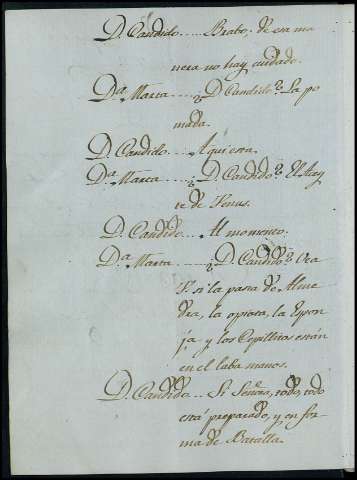 D. Candido..... Brabo; de esa ma
nera no hay cuidado.
D.a Marta.....¿ D. Candido? La po
mada.
D. Candido.... Aqui esta.
D.a Marta.....¿ D. Candido? El
de Venus.
D. Candido... Al momento.
D.a Marta.....¿ D. Candido? Vea
V. si la pasta de Alme
dra, la opiata, la Espon
ja y los Cepillitos están
en el laba manos.
D. Candido... Si Señora, todo, todo
está preparado, y en for
ma de Batalla.